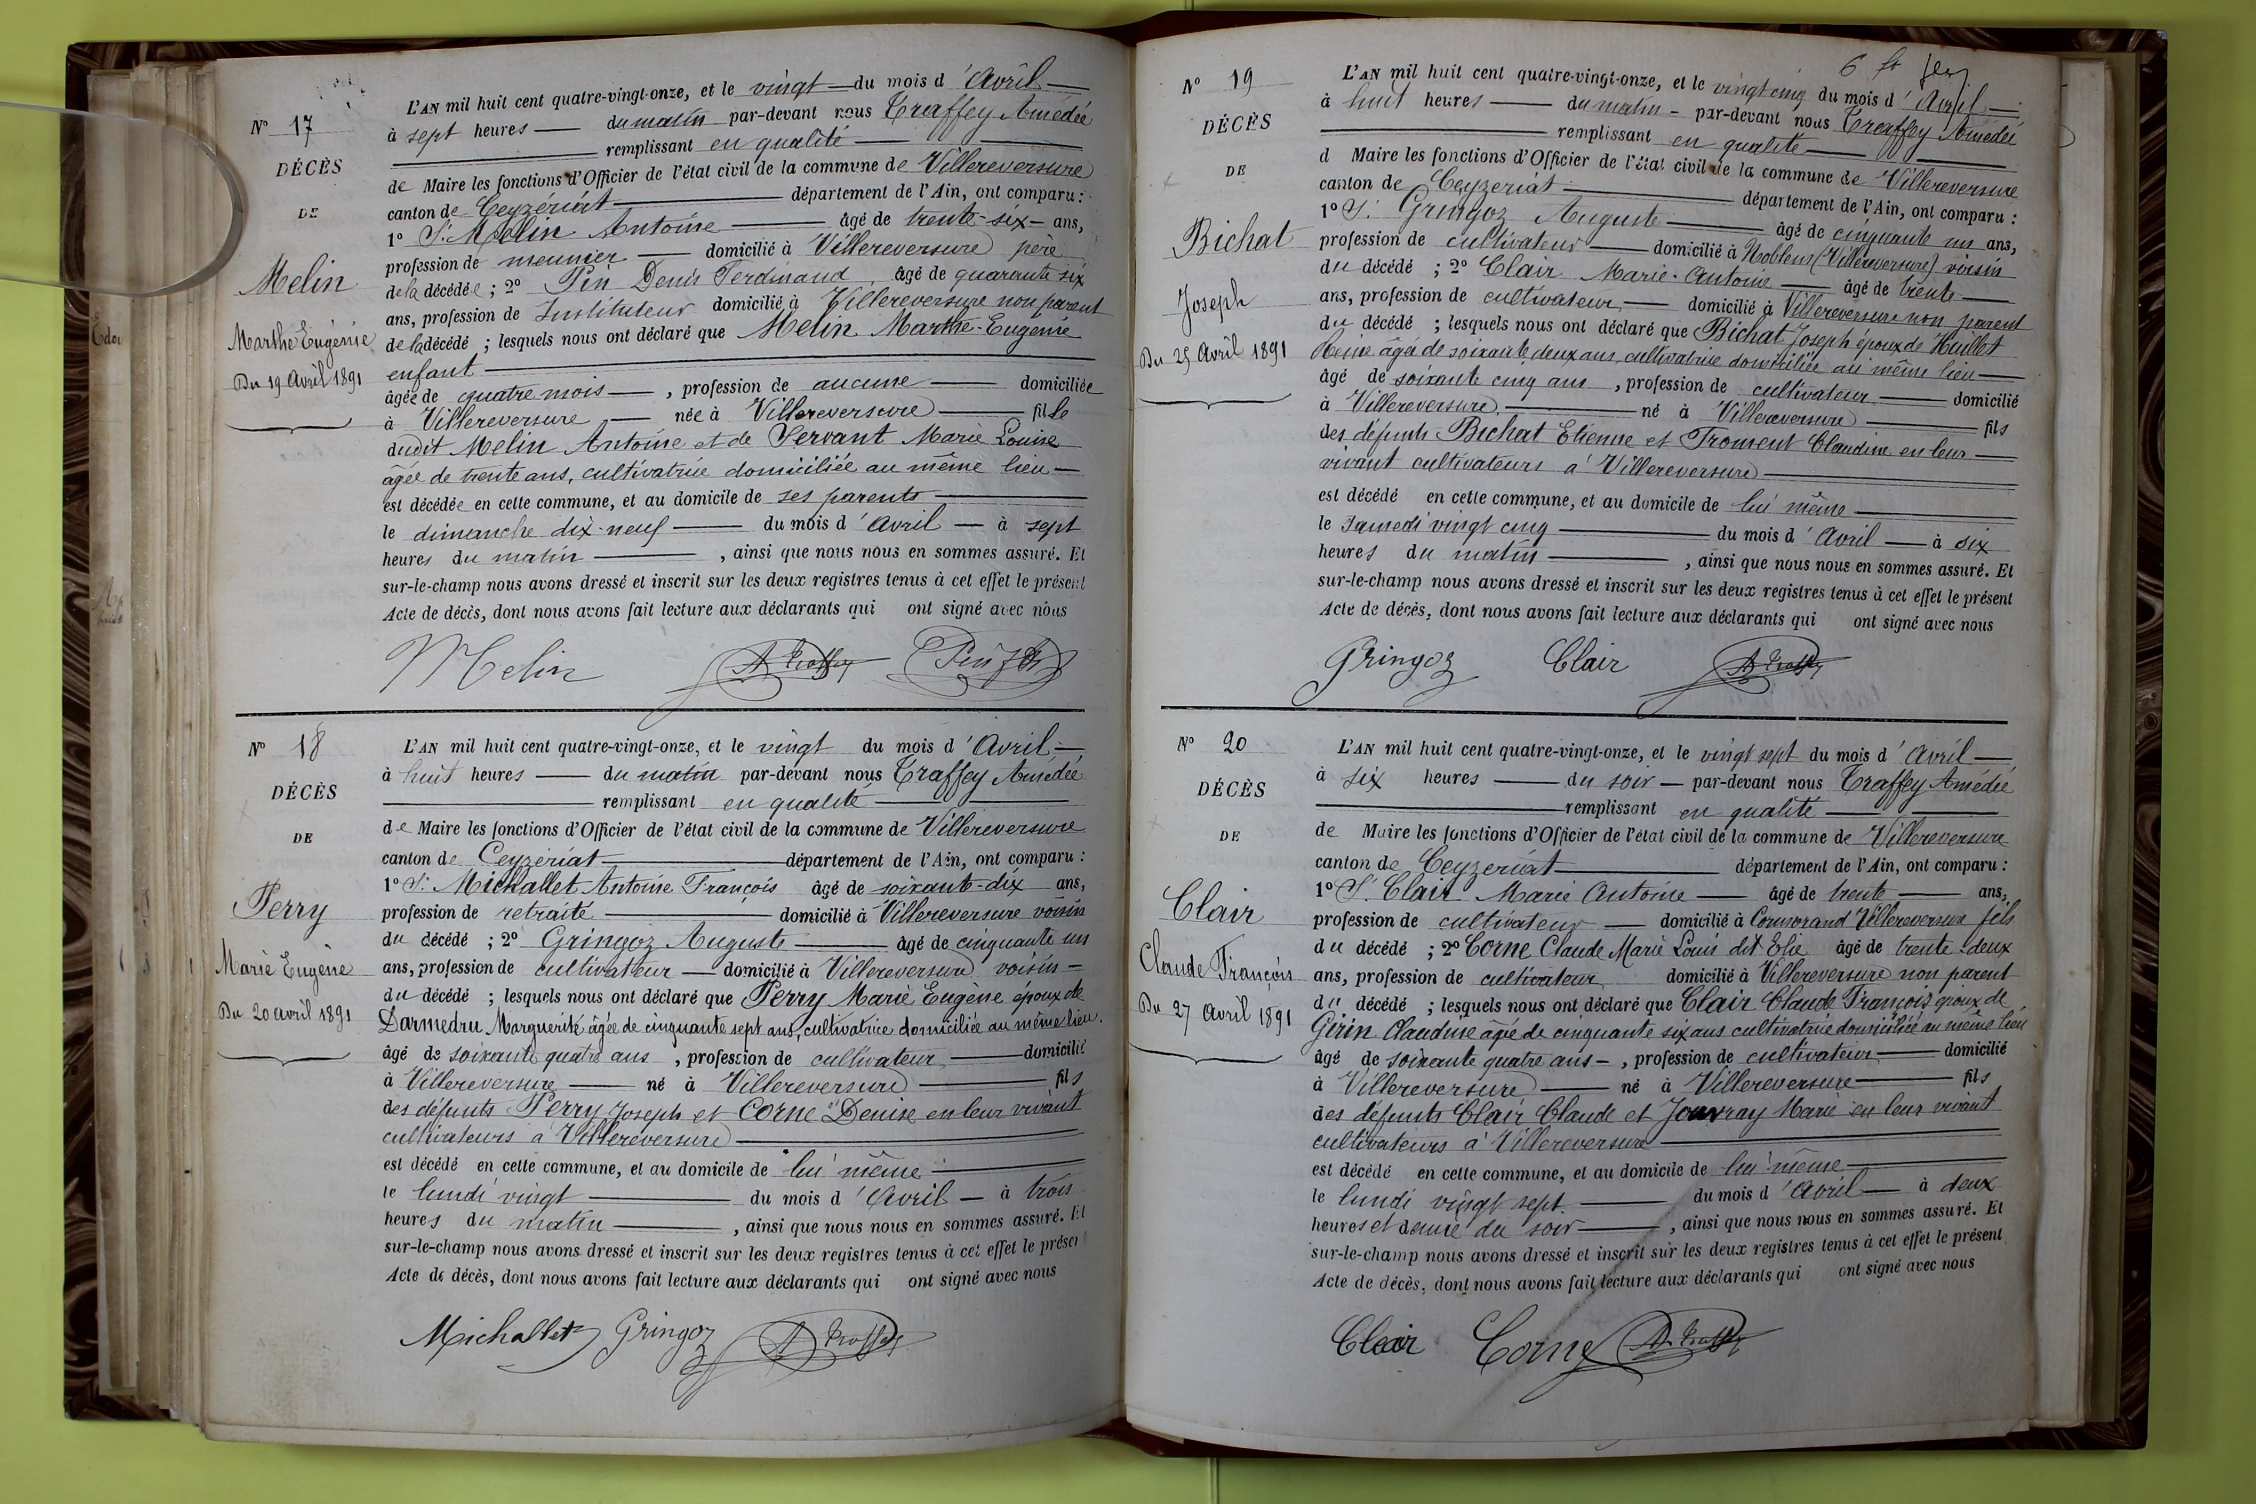 N° 17
DÉCÈS
DE
Melin
Marthe Eugénie
Du 19 Avril 1891
L'AN mil huit cent quatre-vingt-onze, et le vingt du mois d'Avril
à sept heures du matin par-devant nous Traffey Amédée
remplissant en qualité
de Maire les fonctions d'Officier de l'état civil de la commune de Villereversure
canton de Ceyzériat département de l'Ain, ont comparu :
1° Sr Melin Antoine âgé de trente-six ans,
profession de meunier domicilié à Villereversure père
de la décédée ; 2° Pin Denis Ferdinand âgé de quarante six
ans, profession de Instituteur domicilié à Villereversure non parent
de la décédé ; lesquels nous ont déclaré que Melin Marthe-Eugénie
enfant
âgée de quatre mois , profession de aucune domiciliée
à Villereversure née à Villereversure fille
dudit Melin Antoine et de Servant Marie Louise
âgée de trente ans, cultivatrice domiciliée au même lieu
est décédée en cette commune, et au domicile de ses parents
le dimanche dix-neuf du mois d'Avril à sept
heures du matin , ainsi que nous nous en sommes assuré. Et
sur-le-champ nous avons dressé et inscrit sur les deux registres tenus à cet effet le présent
Acte de décès, dont nous avons fait lecture aux déclarants qui ont signé avec nous
Melin A Traffey Pin
N° 18
DÉCÈS
DE
Perry
Marie Eugène
Du 20 avril 1891
L'AN mil huit cent quatre-vingt-onze, et le vingt du mois d'Avril
à huit heures du matin par-devant nous Traffey Amédée
remplissant en qualité
de Maire les fonctions d'Officier de l'état civil de la commune de Villereversure
canton de Ceyzériat département de l'Ain, ont comparu :
1° Sr Michallet Antoine François âgé de soixante-dix ans,
profession de retraité domicilié à Villereversure voisin
du décédé ; 2° Gringoz Auguste âgé de cinquante un
ans, profession de cultivateur domicilié à Villereversure voisin
du décédé ; lesquels nous ont déclaré que Perry Marie Eugène époux de
Darmedru Marguerite âgée de cinquante sept ans, cultivatrice domiciliée au même lieu.
âgé de soixante quatre ans , profession de cultivateur domicilié
à Villereversure né à Villereversure fils
des défunts Perry Joseph et Corne Denise en leur vivant
cultivateurs à Villereversure
est décédé en cette commune, et au domicile de lui même
le lundi vingt du mois d'Avril à trois
heures du matin , ainsi que nous nous en sommes assuré. Et
sur-le-champ nous avons dressé et inscrit sur les deux registres tenus à cet effet le présen
Acte de décès, dont nous avons fait lecture aux déclarants qui ont signé avec nous
Michallet Gringoz A Traffey
N° 19
DÉCÈS
DE
Bichat
Joseph
Du 25 Avril 1891
L'AN mil huit cent quatre-vingt-onze, et le vingt cinq du mois d'Avril
à huit heures du matin par-devant nous Traffey Amédée
remplissant en qualité
d Maire les fonctions d'Officier de l'état civil de la commune de Villereversure
canton de Ceyzeriat département de l'Ain, ont comparu :
1° Sr Gringoz Auguste âgé de cinquante un ans,
profession de cultivateur domicilié à Noblens (Villereversure) voisin
du décédé ; 2° Clair Marie-Antoine âgé de trente
ans, profession de cultivateur domicilié à Villereversure non parent
du décédé ; lesquels nous ont déclaré que Bichat Joseph époux de Huillet
Reine âgée de soixante deux ans cultivatrice domiciliée au même lieu
âgé de soixante cinq ans , profession de cultivateur domicilié
à Villereversure né à Villereversure fils
des défunts Bichat Etienne et Froment Claudine en leur
vivant cultivateurs à Villereversure
est décédé en cette commune, et au domicile de lui même
le samedi vingt cinq du mois d'Avril à six
heures du matin , ainsi que nous nous en sommes assuré. Et
sur-le-champ nous avons dressé et inscrit sur les deux registres tenus à cet effet le présent
Acte de décès, dont nous avons fait lecture aux déclarants qui ont signé avec nous
Gringoz Clair A Traffey
N° 20
DÉCÈS
DE
Clair
Claude François
Du 27 Avril 1891
L'AN mil huit cent quatre-vingt-onze, et le vingt sept du mois d'Avril
à six heures du soir par-devant nous Traffey Amédée
remplissant en qualité
de Maire les fonctions d'Officier de l'état civil de la commune de Villereversure
canton de Ceyzeriat département de l'Ain, ont comparu :
1° Sr Clair Marie Antoine âgé de trente ans,
profession de cultivateur domicilié à Cormorand Villereversure fils
du décédé ; 2° Corne Claude Marie Louis dit Elie âgé de trente deux
ans, profession de cultivateur domicilié à Villereversure non parent
du décédé ; lesquels nous ont déclaré que Clair Claude François époux de
Girin Claudine âgée de cinquante six ans cultivatrice domiciliée au même lieu
âgé de soixante quatre ans , profession de cultivateur domicilié
à Villereversure né à Villereversure fils
des défunts Clair Claude et Jouvray Marie en leur vivant
cultivateurs à Villereversure
est décédé en cette commune, et au domicile de lui même
le lundi vingt sept du mois d'Avril à deux
heures et demie du soir , ainsi que nous nous en sommes assuré. Et
sur-le-champ nous avons dressé et inscrit sur les deux registres tenus à cet effet le présent
Acte de décès, dont nous avons fait lecture aux déclarants qui ont signé avec nous
Clair Corne A. Traffey